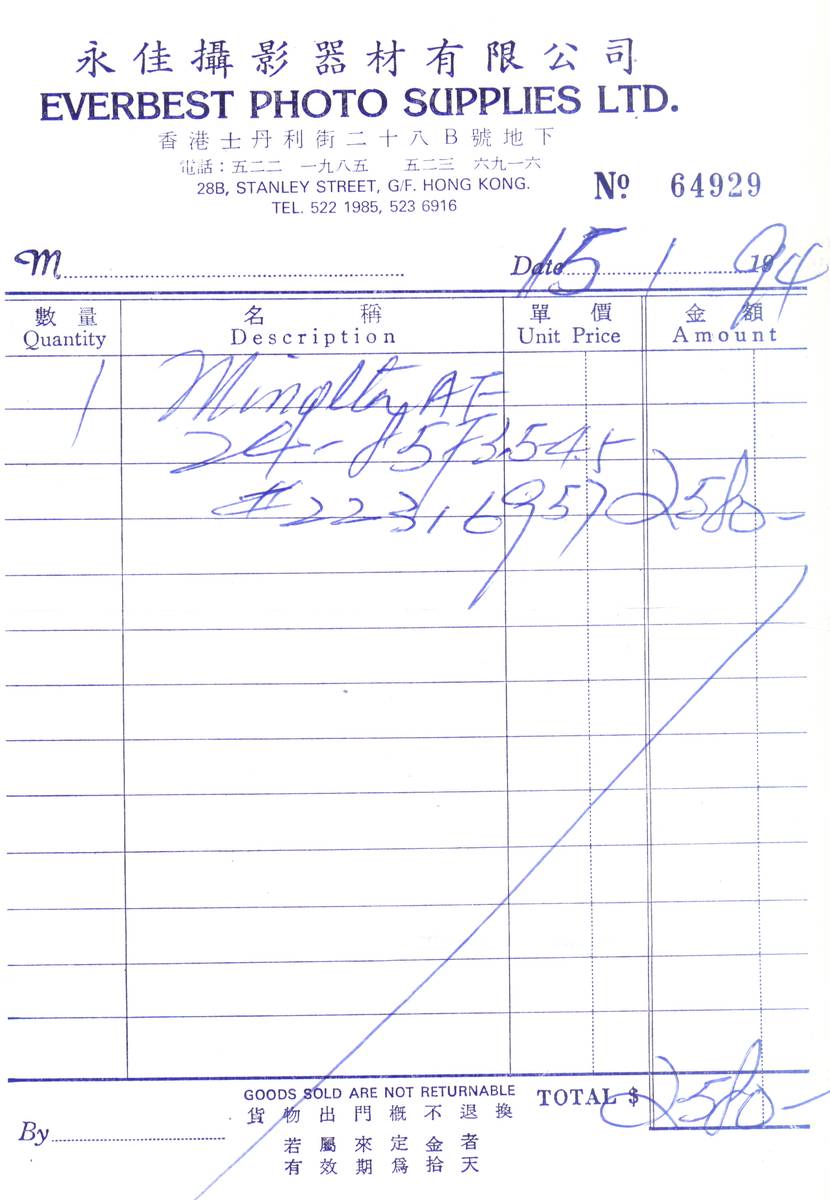 永佳攝影器材有限公司
EVERBEST PHOTO SUPPLIES LTD.
香港士丹利街二十八B號地下
電話：五二二 一九八五 五二三 六九一六
28B, STANLEY STREET, G/F. HONG KONG.
TEL. 522 1985, 523 6916
Nº 64929
M
Date 15 / 1 1994
數量 名稱 單價 金額
Quantity Description Unit Price Amount
1 Minolta AF
24-85/3.5-4.5
#22316957 2580-
GOODS SOLD ARE NOT RETURNABLE TOTAL $ 2580-
貨物出門概不退換
By
若屬來定金者
有效期為拾天